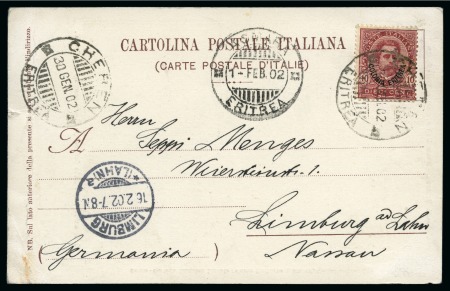 CARTOLINA POSTALE ITALIANA
(CARTE POSTALE D'ITALIE)
CHEREN
30 GEN 02
ERITREA
1-FEB. 02
ERITREA
ERITREA
Herrn
A Seppi Menges
LIMBURG
16.2.02. 7-8 N.
*(LAHN) 2
Limburg a/d Lahn
(Germania) Nassau
NB. Sul lato anteriore della presente